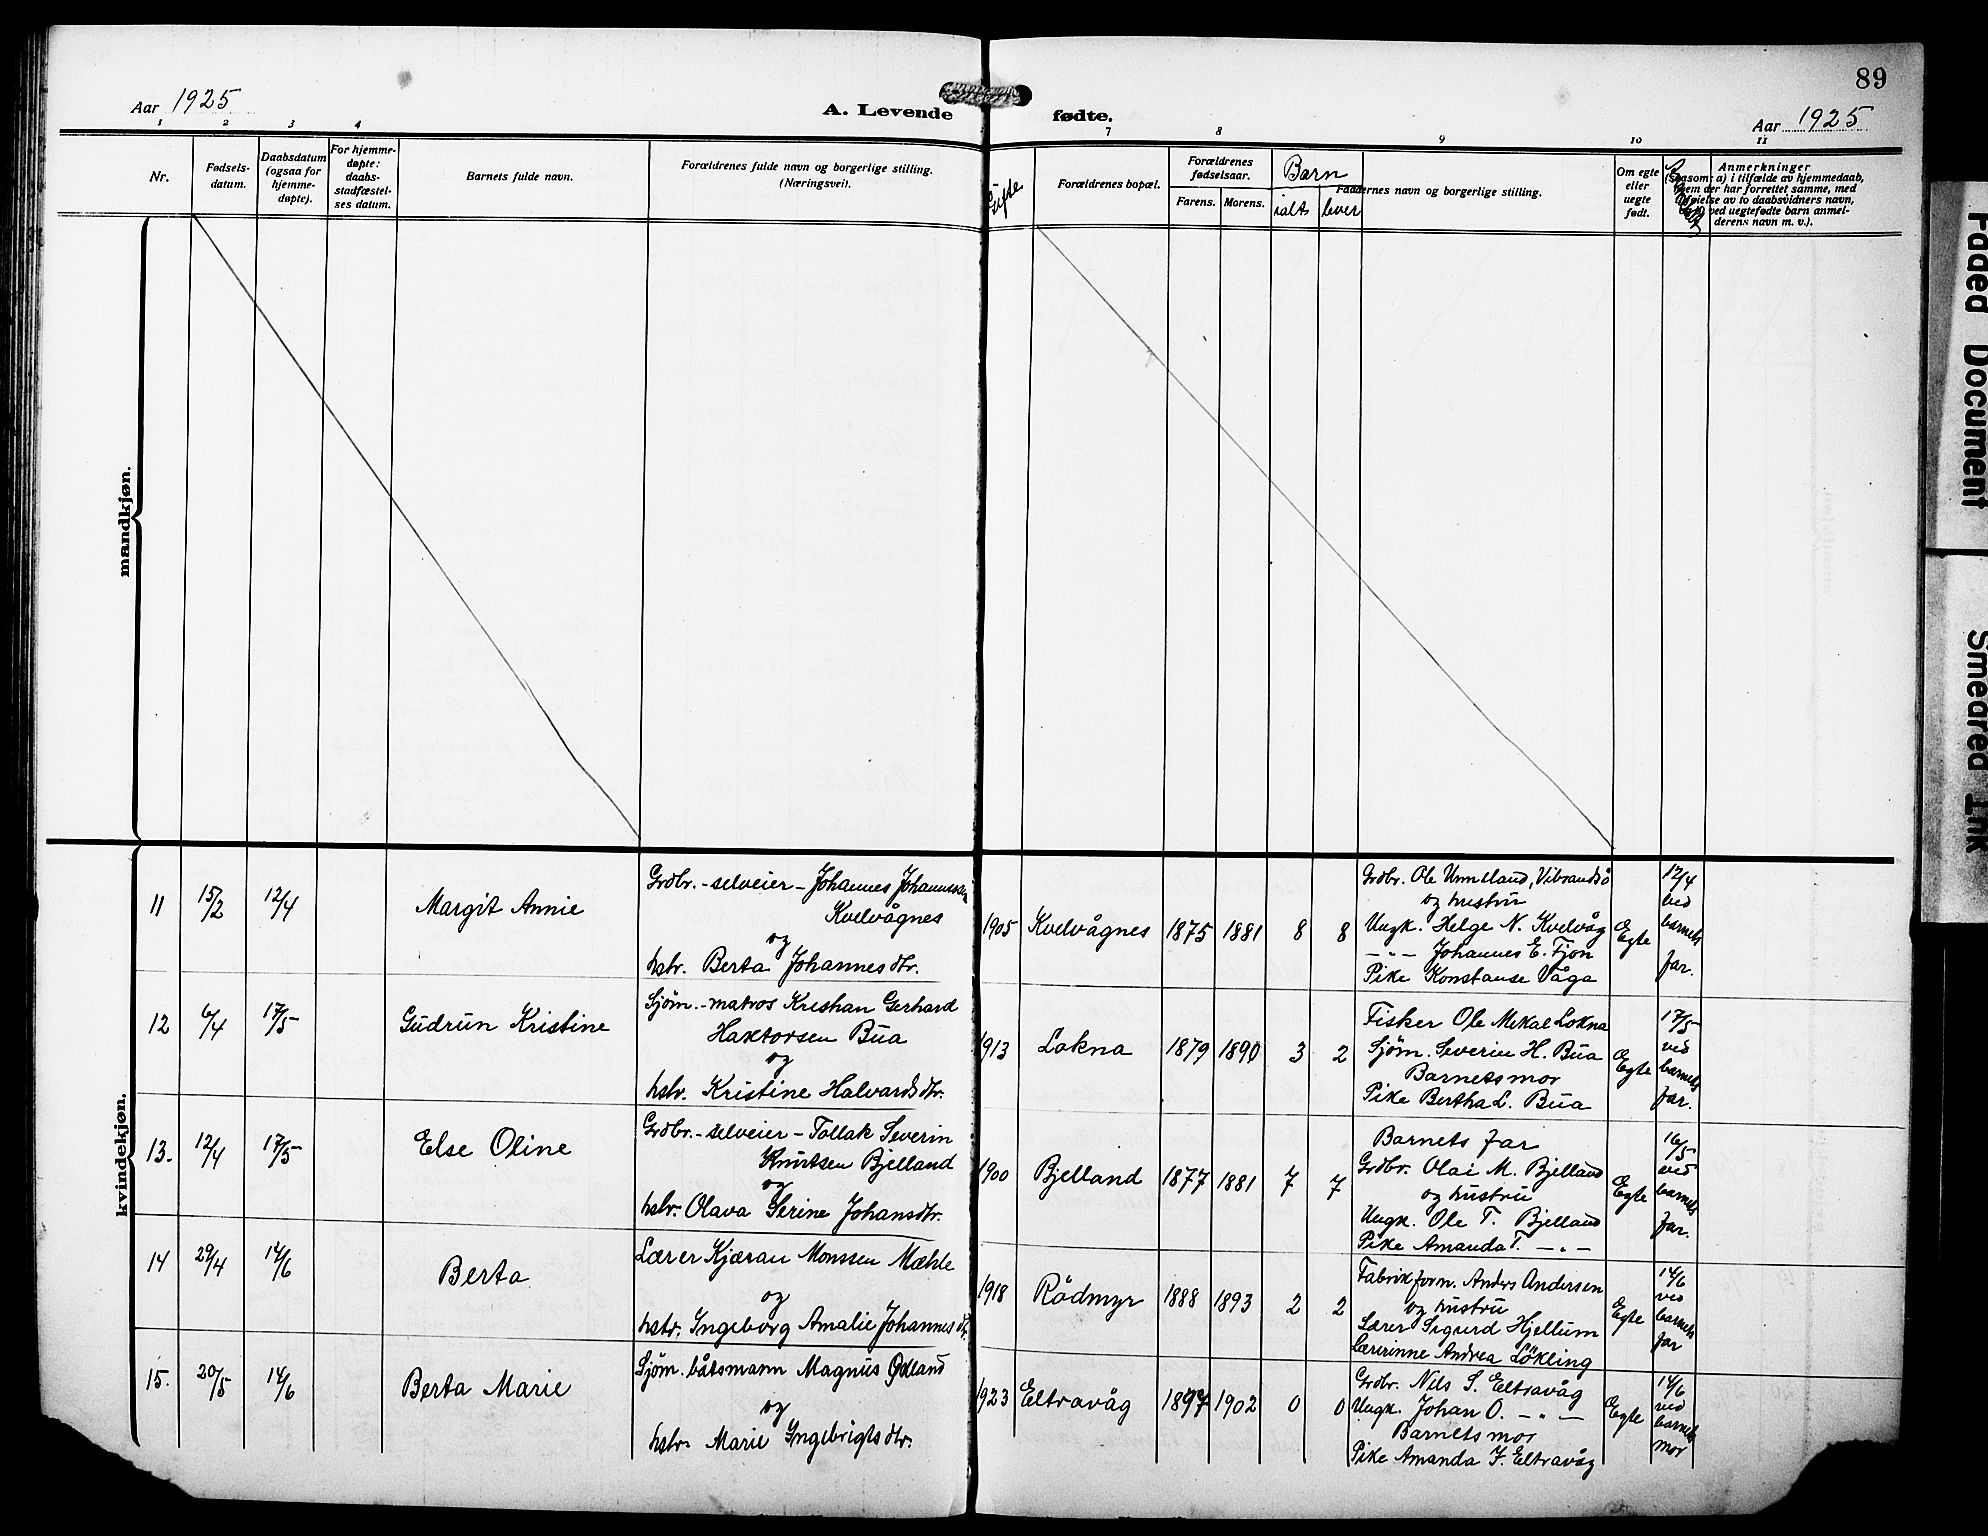 89
Aar 1925
A. Levende fødte.
Aar 1925
1 2 3 4 7 8 9 10 11
Nr.
Fødsels-
datum.
Daabsdatum
(ogsaa for
hjemme-
døpte).
For hjemme-
døpte:
daabs-
stadfæstel-
ses datum.
Barnets fulde navn.
Forældrenes fulde navn og borgerlige stilling.
(Næringsvei).
Gifte
Forældrenes bopæl.
Forældrenes
fødselsaar.
Farens. Morens.
Barn
ialt lever
Faddernes navn og borgerlige stilling.
Om egte
eller
uegte
født.
Anmerkninger
(saasom: a) i tilfælde av hjemmedaab,
hvem der har forrettet samme, med
tilføielse av to daabsvidners navn,
b) ved uegtefødte barn anmel-
derens navn m. v.).
mandkjøn.
kvindekjøn.
11 15/2 12/4 Margit Annie
Grdbr. - selveier - Johannes Johannessen
Kvelvågnes
og
hstr. Berta Johannesdtr.
1905 Kvelvågnes 1875 1881 8 8
Grdbr. Ole Unneland, Vibrandsö
og hustru
Ungk. Helge N. Kvelvåg
- " - Johannes E. Fjon
Pike Konstanse Våga
Egte
12/4
ved
barnets
far.
12 6/4 17/5 Gudrun Kristine
Sjöm. - matros Kristian Gerhard
Haktorsen Bua
og
hstr. Kristine Halvardsdtr.
1913 Lokna 1879 1890 3 2
Fisker Ole Mikal Lokna
Sjöm. Severin H. Bua
Barnets mor
Pike Bertha L. Bua
Egte
17/5
ved
barnets
far.
13. 12/4 17/5 Else Oline
Grdbr. - selveier - Tollak Severin
Knutsen Bjelland
og
hstr. Olava Serine Johansdtr.
1900 Bjelland 1877 1881 7 7
Barnets far
Grdbr. Olai M. Bjelland
og hustru
Ungk. Ole T. Bjelland
Pike Amanda T. - " -
Egte
16/5
ved
barnets
far.
14 29/4 14/6 Berta
Lærer Kjæran Monssen Mæhle
og
hstr. Ingeborg Amalie Johannesdtr.
1918 Rödmyr 1888 1893 2 2
Fabrikform. Anders Andersen
og hustru
Lærer Sigurd Hjellum
Lærerinne Andrea Lökling
Egte
14/6
ved
barnets
far
15. 20/5 14/6 Berta Marie
Sjöm. båtsmann Magnus Ödland
og
hstr. Marie Ingebrigtsdtr.
1923 Eltravåg 1897 1902 0 0
Grdbr. Nils S. Eltravåg
Ungk. Johan O. - " -
Barnets mor
Pike Amanda J. Eltravåg
Egte
14/6
ved
barnets
mor
Faded Document
Smeared Ink